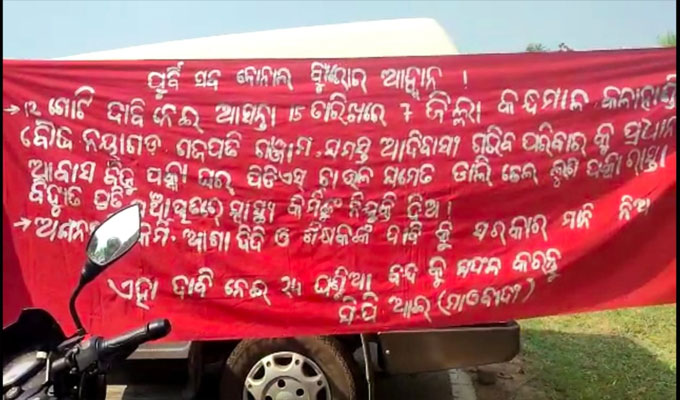 ପୂର୍ବ ସବ ଜୋନାଲ ବ୍ୟୁରୋର ଆହ୍ୱାନ !
→ ୧୨ ଗୋଟି ଦାବି ନେଇ ଆସନ୍ତା 15 ତାରିଖରେ 7 ଜିଲ୍ଲା କନ୍ଧମାଳ କଳାହାଣ୍ଡି
ବୌଦ୍ଧ ନୟାଗଡ଼ ଗଜପତି ଗଞ୍ଜାମ ସମସ୍ତ ଆଦିବାସୀ ଗରିବ ପରିବାର କୁ ପ୍ରଧାନ
ଆବାସ ପକ୍କା ଘର ପିଡିଏସ୍ ଚାଉଳ ସମେତ ଡାଲି ତେଲ ଲୁଗା ପକ୍କା ରାସ୍ତା
ବିଦ୍ୟୁତ ପ୍ରତି ସ୍ୱାସ୍ଥ୍ୟ କର୍ମିଙ୍କୁ ନିଯୁକ୍ତି ଦିଅ !
→ ଆଶା ଦିଦି ଓ ଶିକ୍ଷକଙ୍କ ଦାବି କୁ ସରକାର ମାନି ନିଅ
ଏହା ଦାବି ନେଇ ୨୪ ଘଣ୍ଟିଆ ବନ୍ଦ କୁ ସଫଳ କରନ୍ତୁ
ସି.ପି.ଆଇ (ମାଓବାଦୀ)